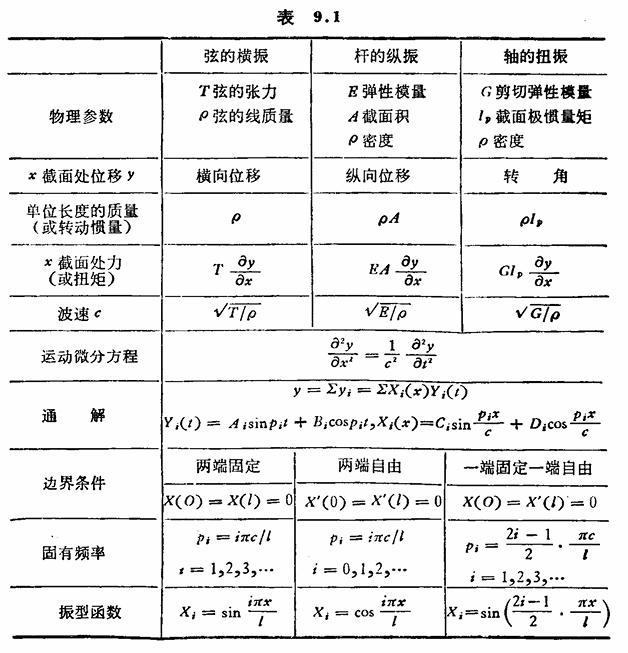 表 9.1
弦的横振 杆的纵振 轴的扭振
物理参数
T弦的张力
ρ弦的线质量
E弹性模量
A截面积
ρ密度
G剪切弹性模量
Iₚ截面极惯量矩
ρ密度
x截面处位移y 横向位移 纵向位移 转 角
单位长度的质量
(或转动惯量)
ρ ρA ρIₚ
x截面处力
(或扭矩)
T ∂y/∂x EA ∂y/∂x GIₚ ∂y/∂x
波速c √T/ρ √E/ρ √G/ρ
运动微分方程 ∂²y/∂x² = 1/c² ∂²y/∂t²
通 解
y = Σyᵢ = ΣXᵢ(x)Yᵢ(t)
Yᵢ(t) = Aᵢsinpᵢt + Bᵢcospᵢt,Xᵢ(x)=Cᵢsin pᵢx/c + Dᵢcos pᵢx/c
边界条件
两端固定 两端自由 一端固定一端自由
X(O) = X(l) = 0 X′(0) = X′(l) = 0 X(O) = X′(l) = 0
固有频率
pᵢ = iπc/l
i = 1,2,3,…
pᵢ = iπc/l
i = 0,1,2,…
pᵢ = 2i − 1/2 · πc/l
i = 1,2,3,…
振型函数 Xᵢ = sin iπx/l Xᵢ = cos iπx/l Xᵢ=sin(2i−1/2 · πx/l)